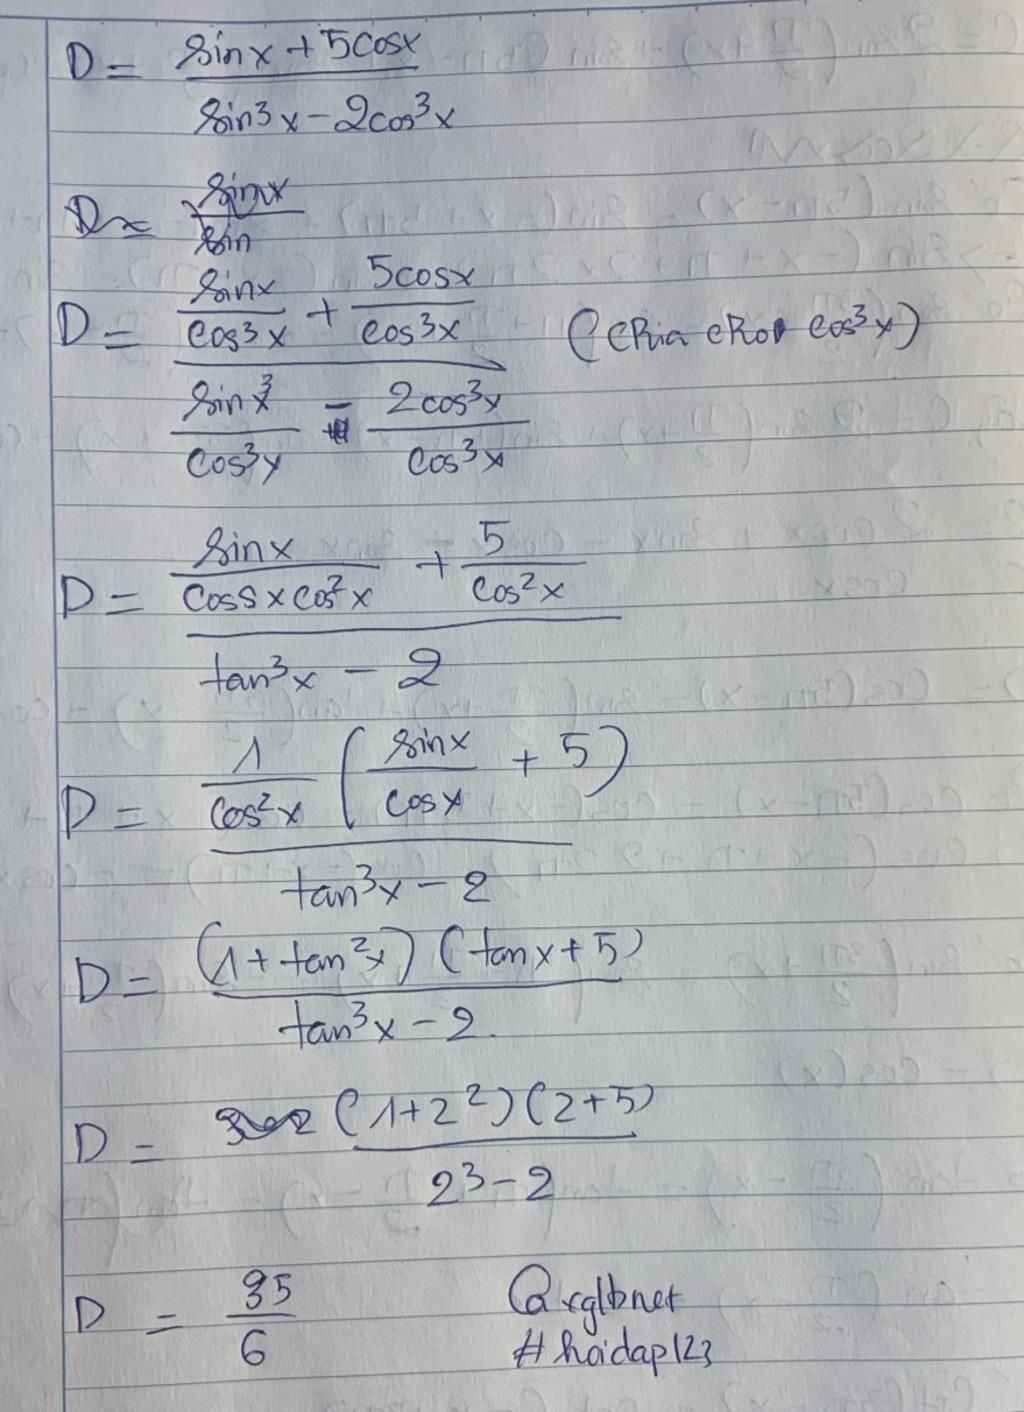 D = (sinx + 5cosx)/(sin³x - 2cos³x)
D = sinx/sin
D = (sinx/cos³x + 5cosx/cos³x)/(sinx³/cos³x - 2cos³x/cos³x) (chia cho cos³x)
D = (sinx/(cosx x cos²x) + 5/cos²x)/(tan³x - 2)
D = (1/cos²x (sinx/cosx + 5))/(tan³x - 2)
D = ((1 + tan²x)(tanx + 5))/(tan³x - 2)
D = ((1+2²)(2+5))/(2³-2)
D = 35/6
@rglbnet
#hoidap123